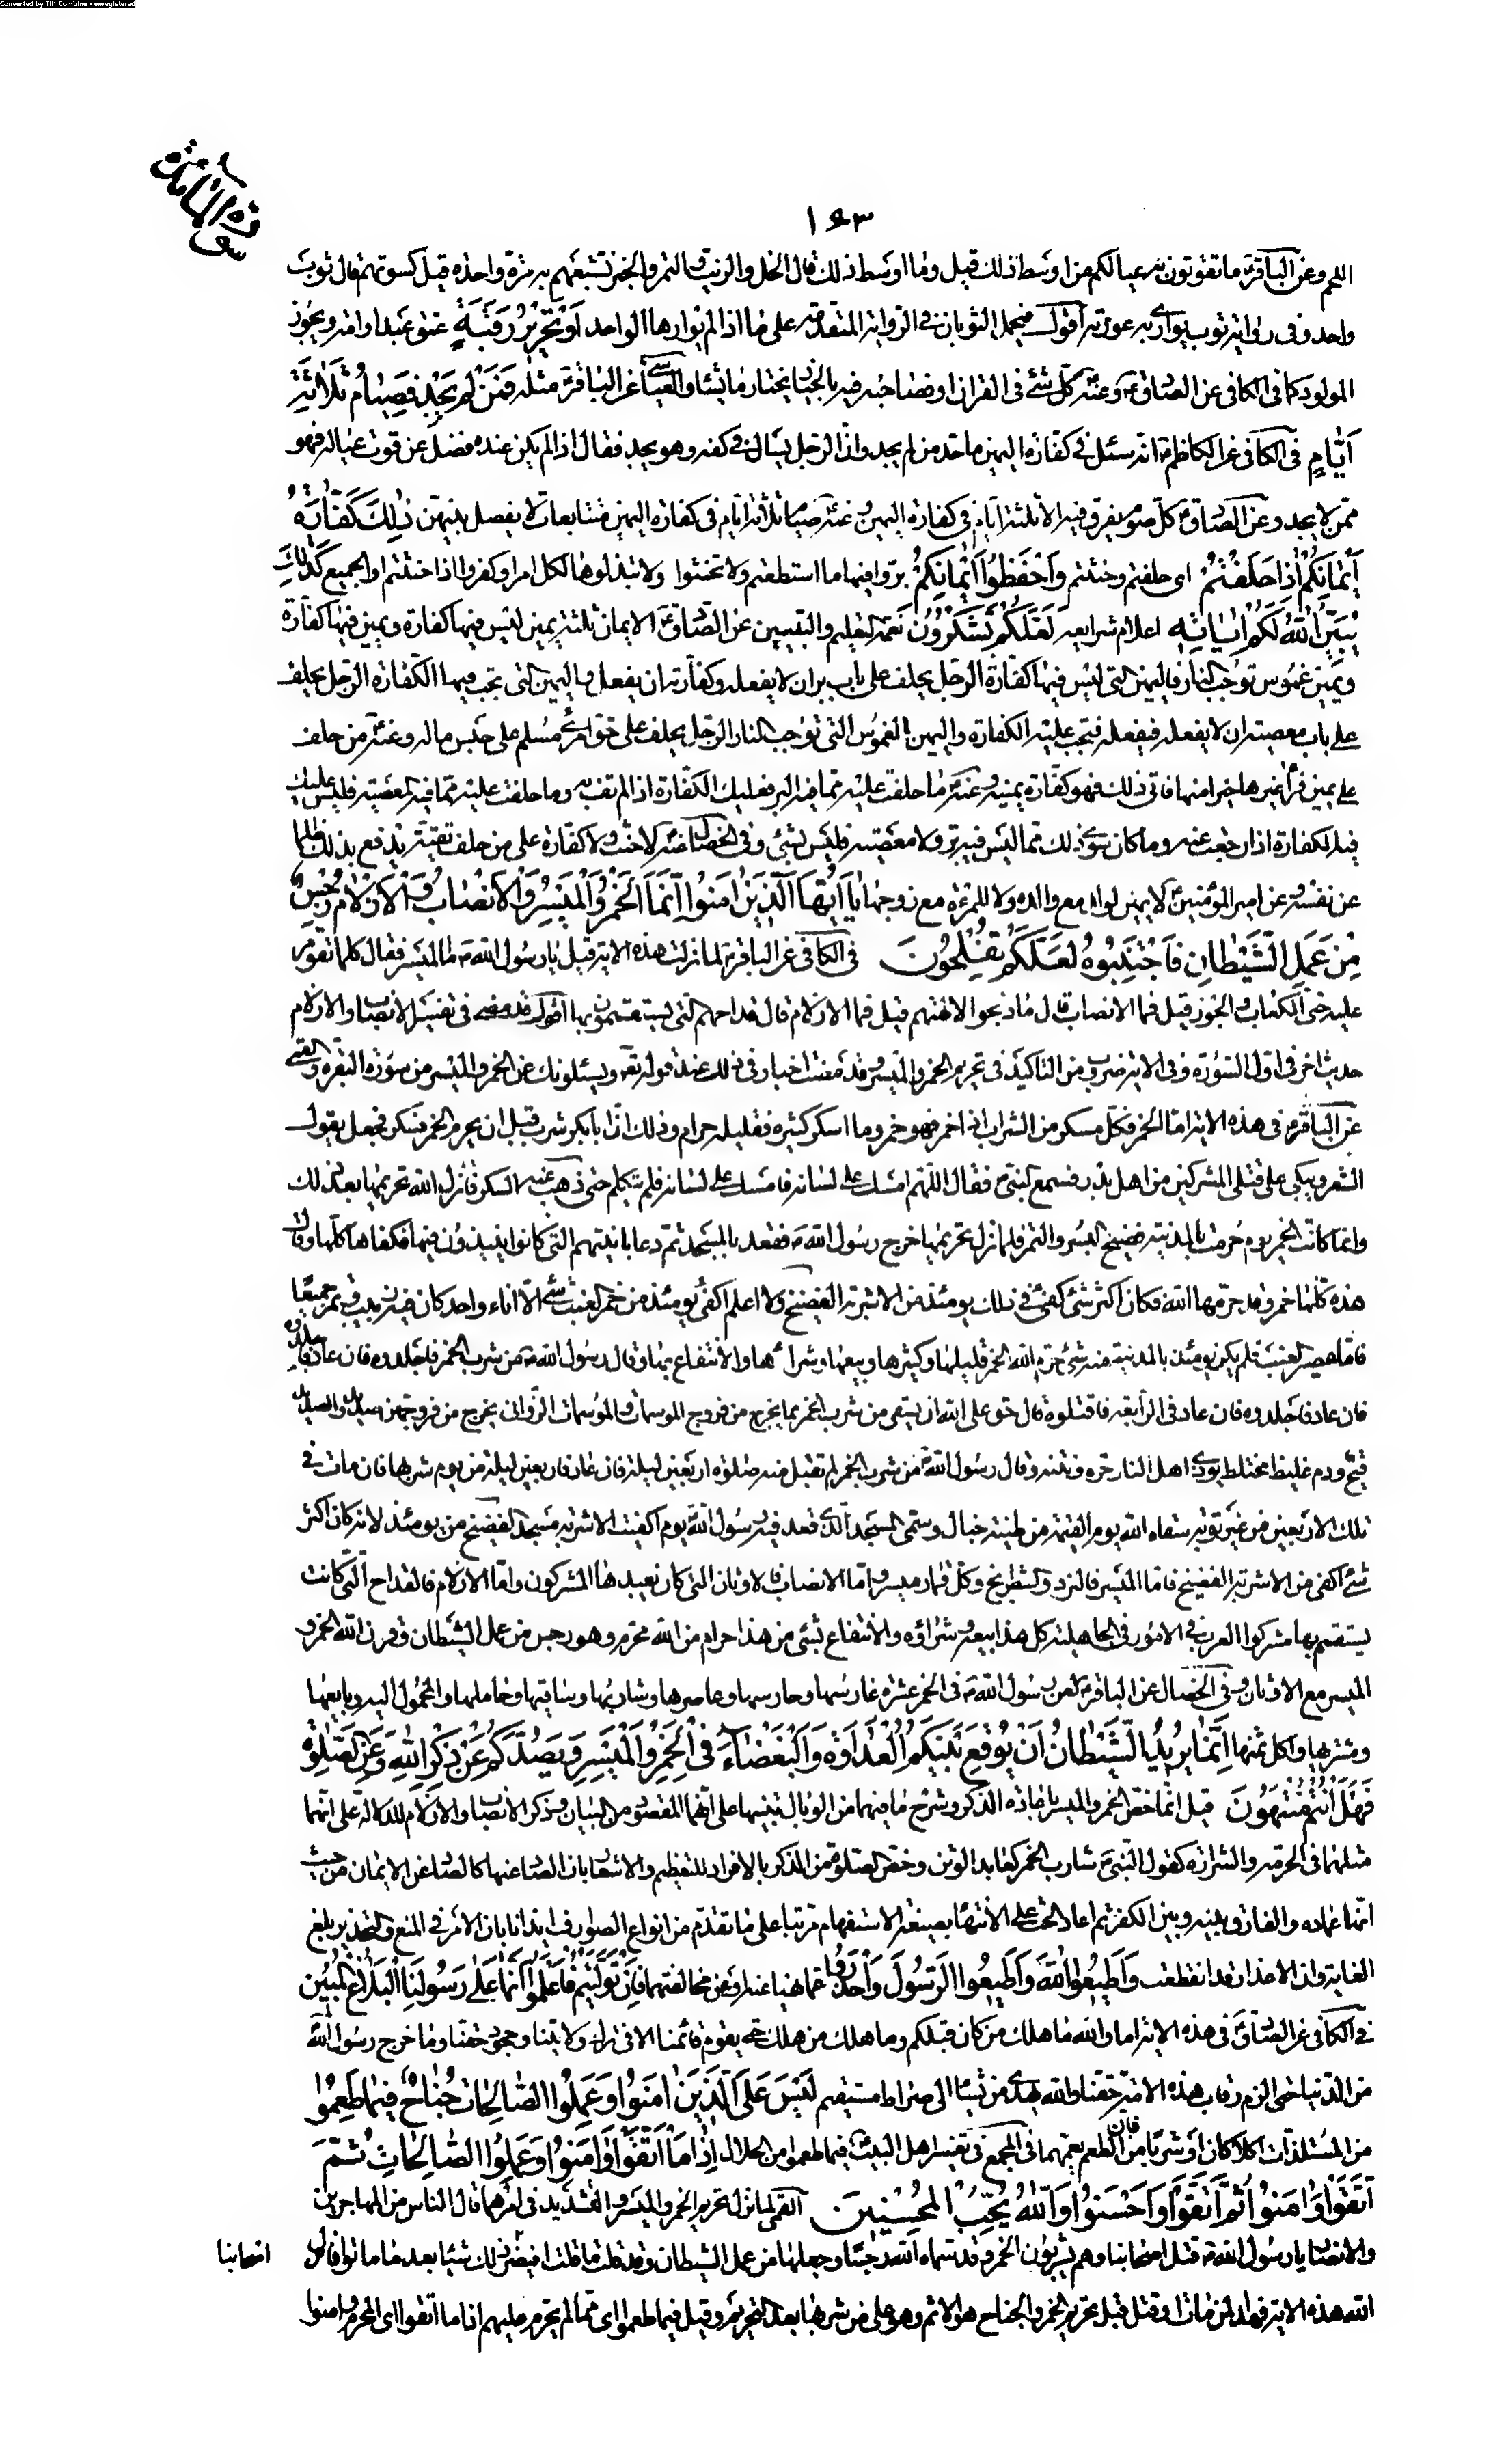 Converted by Tiff Combine - unregistered
سورة المائدة
١٤٣
اللحم وعن الباقر ع ما تقوتون به عيالكم من اوسط ذلك قيل وما اوسط ذلك قال الخل والزيت والتمر والخبز تشبعهم به مرة واحدة قيل كسوتهم قال ثوب
واحد وفي رواية ثوب يواري به عورته اقول فيحمل الثوبان في الرواية المتقدمة على ما اذا لم يوارها الواحد أَوْ تَحْرِيرُ رَقَبَةٍ عتق عبد او امة ويجوز
المولود كما في الكافي عن الصادق ع وعنه ع كل شيء في القران او فصاحبه فيه بالخيار يختار ما يشاء والعياشي عن الباقر ع مثله فَمَنْ لَمْ يَجِدْ فَصِيَامُ ثَلَاثَةِ
أَيَّامٍ في الكافي عن الكاظم ع انه سئل في كفارة اليمين ما حد من لم يجد وان الرجل يسال في كفه وهو يجد فقال اذا لم يكن عنده فضل عن قوت عياله فهو
ممن لا يجد وعن الصادق ع كل صوم يفرق فيه الا ثلثة ايام في كفارة اليمين وعنه ع صيام ثلاثة ايام في كفارة اليمين متتابعات لا يفصل بينهن ذَلِكَ كَفَّارَةُ
أَيْمَانِكُمْ إِذَا حَلَفْتُمْ اي حلفتم وحنثتم وَاحْفَظُوا أَيْمَانَكُمْ بروا فيها ما استطعتم ولا تحنثوا ولا تبذلوها لكل امر او كفروا اذا حنثتم او الجميع كَذَلِكَ
يُبَيِّنُ اللَّهُ لَكُمْ آيَاتِهِ اعلام شرايعه لَعَلَّكُمْ تَشْكُرُونَ نعمة التعليم والتبيين عن الصادق ع الايمان ثلثة يمين ليس فيها كفارة ويمين فيها كفارة
ويمين غموس توجب النار فاليمين التي ليس فيها كفارة الرجل يحلف على باب بر ان لا يفعله وكفارته ان يفعله واليمين التي تجب فيها الكفارة الرجل يحلف
على باب معصية ان لا يفعله فيفعله فتجب عليه الكفارة واليمين الغموس التي توجب النار الرجل يحلف على حق امرئ مسلم على حبس ماله وعنه ع من حلف
على يمين فرأى غيرها خيرا منها فاتى ذلك فهو كفارة يمينه وعنه ع ما حلفت عليه مما فيه البر فعليك الكفارة اذا لم تف به وما حلفت عليه مما فيه المعصية فليس عليك
فيه الكفارة اذا رجعت عنه وما كان سوى ذلك مما ليس فيه بر ولا معصية فليس بشيء وفي الخصال عنه ع لا حنث ولا كفارة على من حلف تقية يدفع بذلك ظلما
عن نفسه وعن امير المؤمنين ع لا يمين لولد مع والده ولا للمرئة مع زوجها يَا أَيُّهَا الَّذِينَ آمَنُوا إِنَّمَا الْخَمْرُ وَالْمَيْسِرُ وَالْأَنْصَابُ وَالْأَزْلَامُ رِجْسٌ
مِنْ عَمَلِ الشَّيْطَانِ فَاجْتَنِبُوهُ لَعَلَّكُمْ تُفْلِحُونَ في الكافي عن الباقر ع لما نزلت هذه الاية قيل يا رسول الله ص ما الميسر فقال كلما تقومر
عليه حتى الكعاب والجوز قيل فما الانصاب قال ما ذبحوا لالهتهم قيل فما الازلام قال قداحهم التي يستقسمون بها اقول قد مضى في تفسير الانصاب والازلام
حديث اخر في اول السورة وفي الاية ضروب من التاكيد في تحريم الخمر والميسر وقد مضت اخبار في ذلك عند قوله تعالى ويسئلونك عن الخمر والميسر من سورة البقرة والقمي
عن الباقر ع في هذه الاية اما الخمر فكل مسكر من الشراب اذا اخمر فهو خمر وما اسكر كثيره فقليله حرام وذلك ان ابا بكر شرب قبل ان يحرم الخمر فسكر فجعل يقول
الشعر ويبكي على قتلى المشركين من اهل بدر فسمع النبي ص فقال اللهم امسك على لسانه فامسك على لسانه فلم يتكلم حتى ذهب عنه السكر فانزل الله تحريمها بعد ذلك
وانما كانت الخمر يوم حرمت بالمدينة فضيخ البسر والتمر فلما نزل تحريمها خرج رسول الله ص فقعد بالمسجد ثم دعا بانيتهم التي كانوا ينبذون فيها فكفاها كلها وقال
هذه كلها خمر وقد حرمها الله فكان اكثر شيء كفئ في ذلك يومئذ من الاشربة الفضيخ ولا اعلم اكفئ يومئذ من خمر العنب شيء الا اناء واحد كان فيه زبيب وتمر جميعا
فاما عصير العنب فلم يكن يومئذ بالمدينة منه شيء حرم الله الخمر قليلها وكثيرها وبيعها وشراءها والانتفاع بها وقال رسول الله ص من شرب الخمر فاجلدوه فان عاد فاجلدوه
فان عاد فاجلدوه فان عاد في الرابعة فاقتلوه قال حق على الله ان يسقي من شرب الخمر مما يخرج من فروج المومسات والمومسات الزواني يخرج من فروجهن صديد والصديد
قيح ودم غليظ مختلط يوذي اهل النار حره ونتنه وقال رسول الله ص من شرب الخمر لم تقبل منه صلوة اربعين ليلة فان عاد فاربعين ليلة من يوم شربها فان مات في
تلك الاربعين من غير توبة سقاه الله يوم القيمة من طينة خبال وسمي المسجد الذي قعد فيه رسول الله ص يوم اكفيت الاشربة مسجد الفضيخ من يومئذ لانه كان اكثر
شيء اكفئ من الاشربة الفضيخ فاما الميسر فالنرد والشطرنج وكل قمار ميسر واما الانصاب فالاوثان التي كان يعبدها المشركون واما الازلام فالقداح التي كانت
يستقسم بها مشركوا العرب في الامور في الجاهلية كل هذا بيعه وشراؤه والانتفاع بشيء من هذا حرام من الله محرم وهو رجس من عمل الشيطان وقرن الله الخمر و
الميسر مع الاوثان وفي الخصال عن الباقر ع لعن رسول الله ص في الخمر عشرة غارسها وحارسها وعاصرها وشاربها وساقيها وحاملها والمحمول اليه وبايعها
ومشتريها واكل ثمنها إِنَّمَا يُرِيدُ الشَّيْطَانُ أَنْ يُوقِعَ بَيْنَكُمُ الْعَدَاوَةَ وَالْبَغْضَاءَ فِي الْخَمْرِ وَالْمَيْسِرِ وَيَصُدَّكُمْ عَنْ ذِكْرِ اللَّهِ وَعَنِ الصَّلَوةِ
فَهَلْ أَنْتُمْ مُنْتَهُونَ قيل انما خص الخمر والميسر باعادة الذكر وشرح ما فيهما من الوبال تنبيها على انهما المقصود من البيان وذكر الانصاب والازلام للدلالة على انهما
مثلهما في الحرمة والشرارة كقول النبي ص شارب الخمر كعابد الوثن وخص الصلوة من الذكر بالافراد للتعظيم والاشعار بان الصاد عنها كالصاد عن الايمان من حيث
انها عماده والفارق بينه وبين الكفر ثم اعاد الحث على الانتهاء بصيغة الاستفهام مرتبا على ما تقدم من انواع الصوارف ايذانا بان الامر في المنع والتحذير بلغ
الغاية وان الاعذار قد انقطعت وَأَطِيعُوا اللَّهَ وَأَطِيعُوا الرَّسُولَ وَاحْذَرُوا عما نهيا عنه او عن مخالفتهما فَإِنْ تَوَلَّيْتُمْ فَاعْلَمُوا أَنَّمَا عَلَى رَسُولِنَا الْبَلَاغُ الْمُبِينُ
في الكافي عن الصادق ع في هذه الاية اما والله ما هلك من كان قبلكم وما هلك من هلك حتى يقوم قائمنا الا في ترك ولايتنا وجحود حقنا وما خرج رسول الله
من الدنيا حتى الزم رقاب هذه الامة حقنا والله يهدي من يشاء الى صراط مستقيم لَيْسَ عَلَى الَّذِينَ آمَنُوا وَعَمِلُوا الصَّالِحَاتِ جُنَاحٌ فِيمَا طَعِمُوا
من المستلذات اكلا كان او شربا فان الطعم يعمهما في المجمع في تفسير اهل البيت فيما طعموا من الحلال إِذَا مَا اتَّقَوْا وَآمَنُوا وَعَمِلُوا الصَّالِحَاتِ ثُمَّ
اتَّقَوْا وَآمَنُوا ثُمَّ اتَّقَوْا وَأَحْسَنُوا وَاللَّهُ يُحِبُّ الْمُحْسِنِينَ القمي لما نزل تحريم الخمر والميسر والتشديد في امرهما قال الناس من المهاجرين
والانصار يا رسول الله ص قتل اصحابنا وهم يشربون الخمر وقد سماه الله رجسا وجعلها من عمل الشيطان وقد قلت ما قلت افيضر ذلك شيئا بعد ما ماتوا فانزل
اصحابنا
الله هذه الاية فهذا لمن مات او قتل قبل تحريم الخمر والجناح هو الاثم وهو على من شربها بعد التحريم وقيل فيما طعموا اي مما لم يحرم عليهم اذا ما اتقوا اي المحرم وامنوا